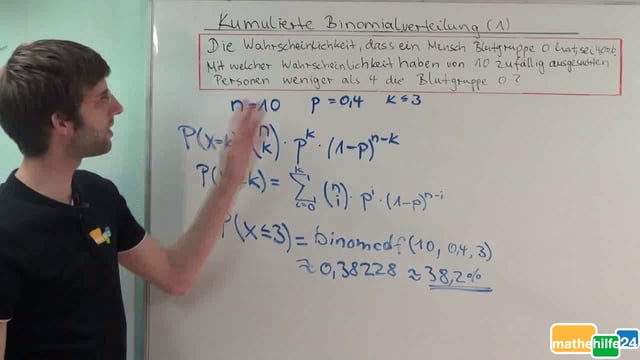 Kumulierte Binomialverteilung (1)
Die Wahrscheinlichkeit, dass ein Mensch Blutgruppe 0 hat, sei 40%.
Mit welcher Wahrscheinlichkeit haben von 10 zufällig ausgesuchten
Personen weniger als 4 die Blutgruppe 0?
n = 10 p = 0,4 k ≤ 3
P(X=k) (n k) · p^k · (1-p)^(n-k)
P(X k) = ∑_{i=0}^{k} (n i) · p^i · (1-p)^(n-i)
P(X≤3) = binomcdf(10, 0,4, 3)
≈ 0,38228 ≈ 38,2%
mathehilfe24